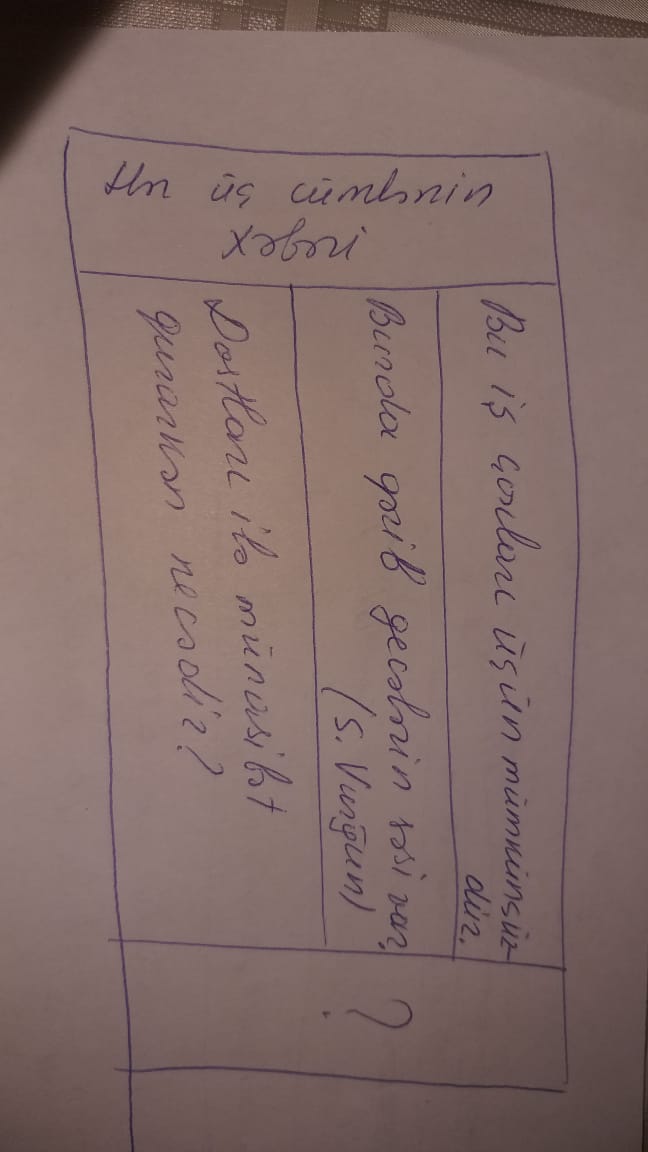 Hər üç cümlənin
xəbəri
Bu iş çoxları üçün mümkünsüz-
dür.
Bunda qərib gecələrin səsi var,
(S. Vurğun)
Dostları ilə münasibət
qurarkən necədir?
?